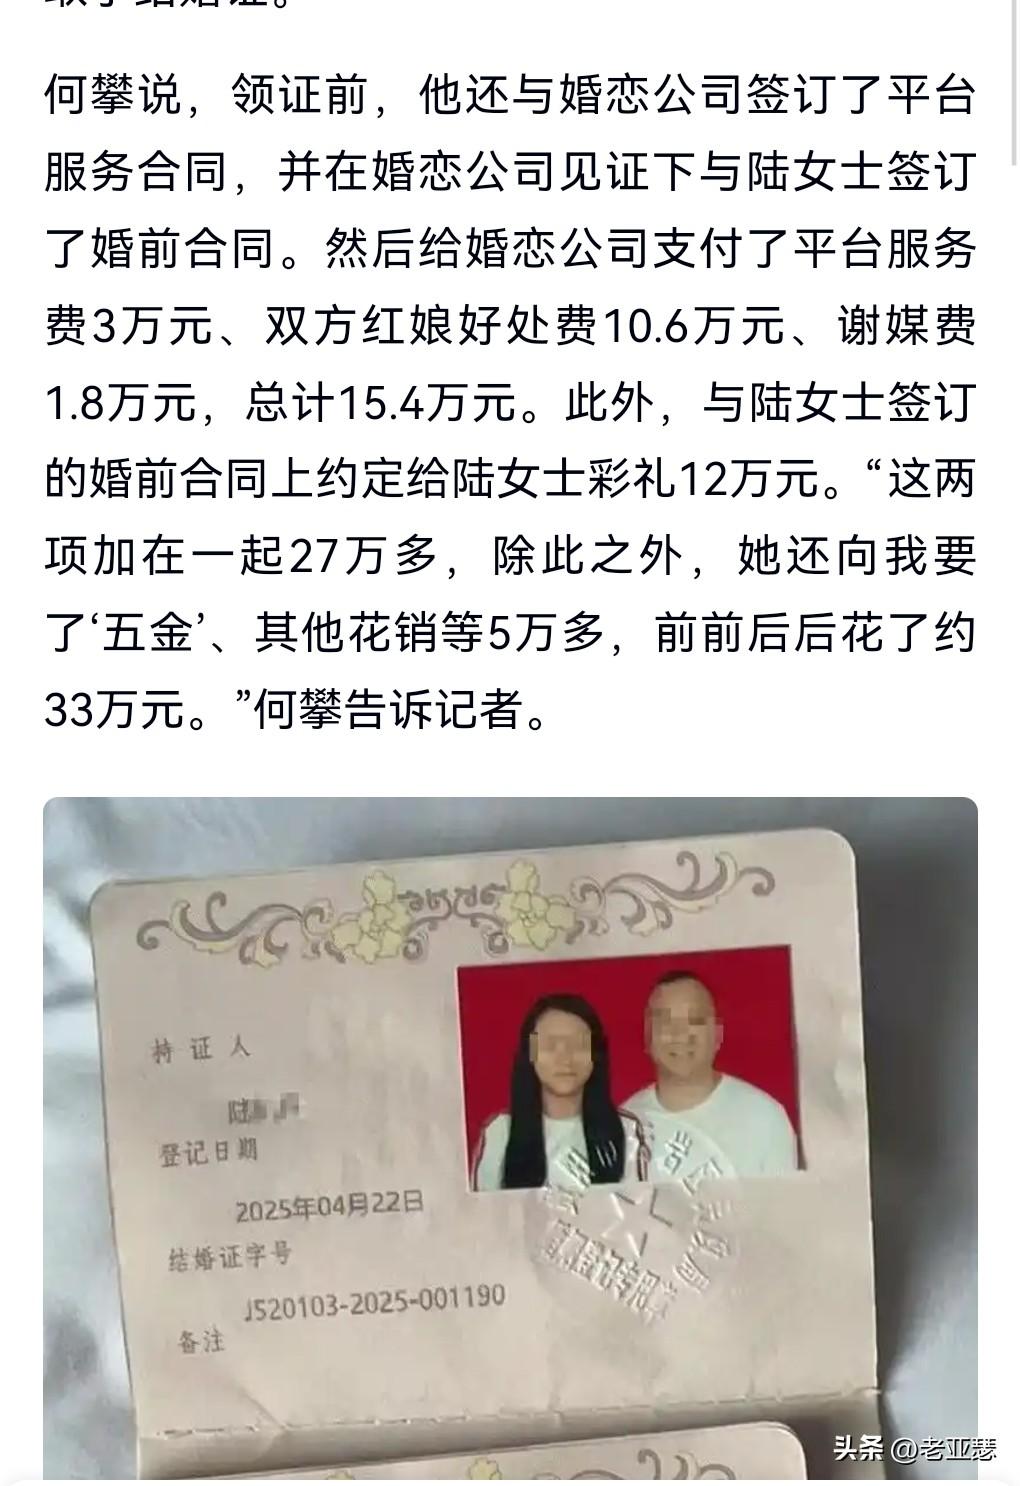 何攀说，领证前，他还与婚恋公司签订了平台
服务合同，并在婚恋公司见证下与陆女士签订
了婚前合同。然后给婚恋公司支付了平台服务
费3万元、双方红娘好处费10.6万元、谢媒费
1.8万元，总计15.4万元。此外，与陆女士签订
的婚前合同上约定给陆女士彩礼12万元。“这两
项加在一起27万多，除此之外，她还向我要
了‘五金’、其他花销等5万多，前前后后花了约
33万元。”何攀告诉记者。
持证人
陆
登记日期
2025年04月22日
结婚证字号
J520103-2025-001190
备注
头条 @老亚瑟